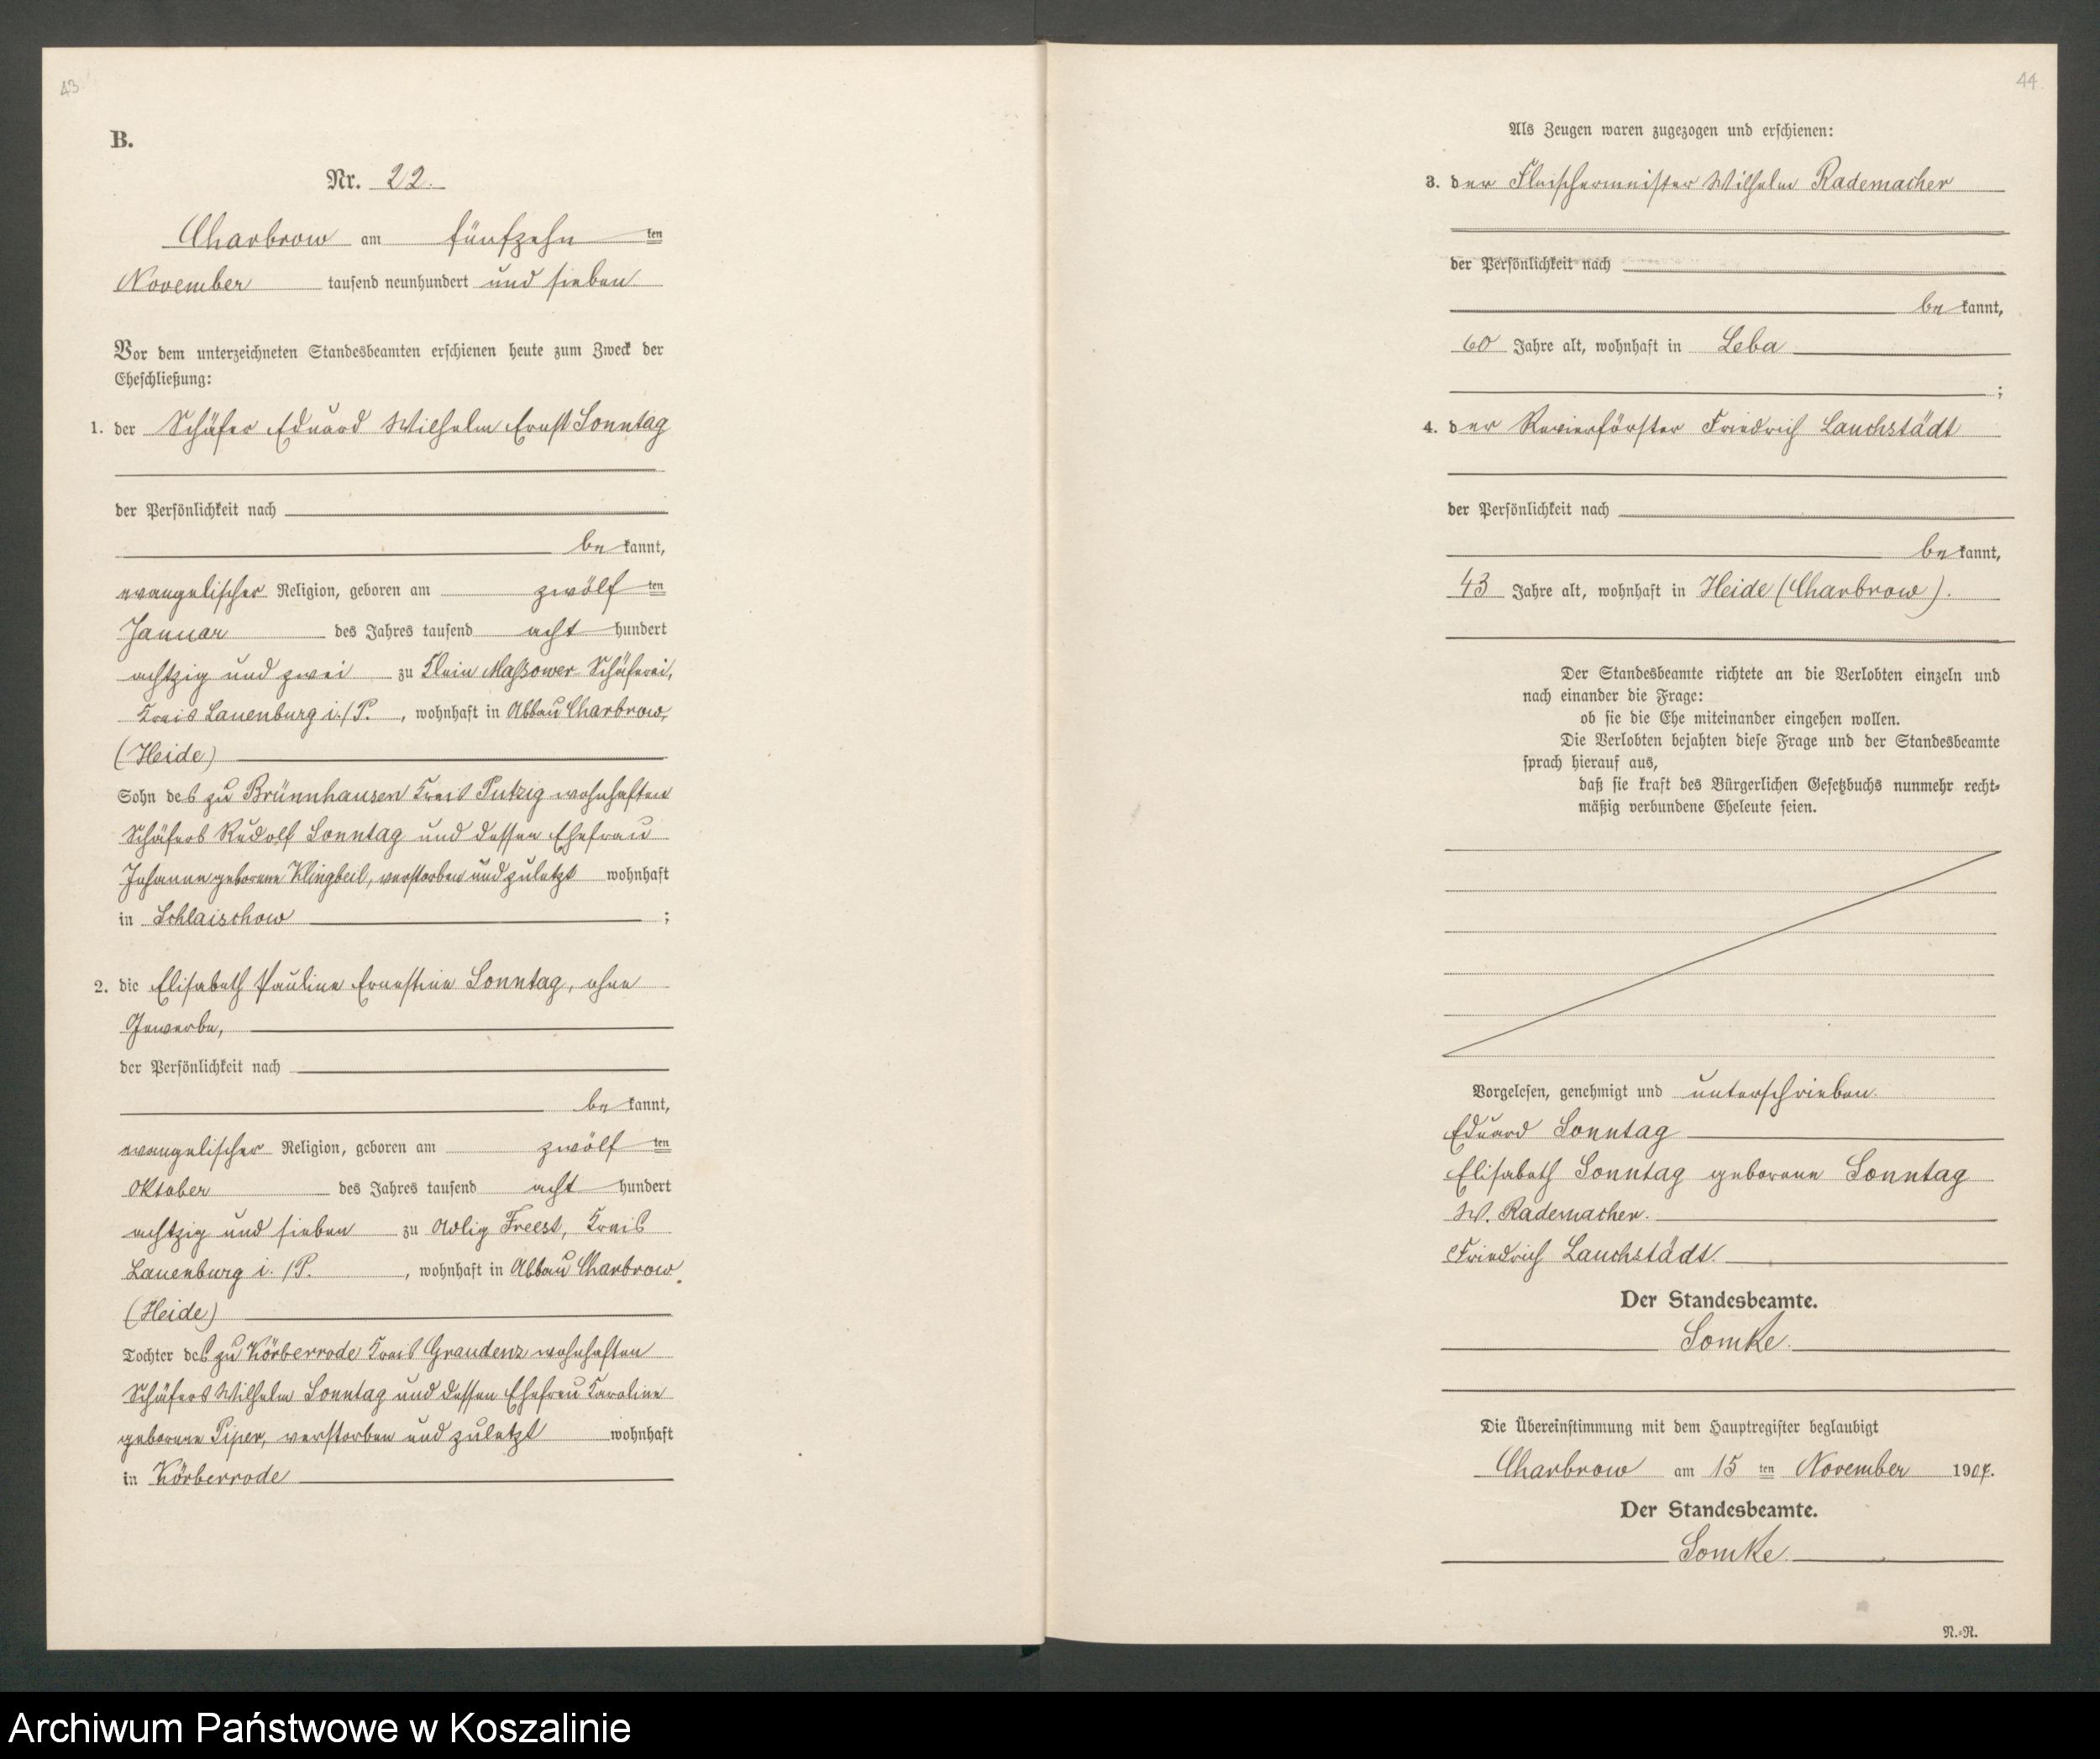 43
B.
Nr. 22.
Charbrow am fünfzehn ten
November tausend neunhundert und sieben.
Vor dem unterzeichneten Standesbeamten erschienen heute zum Zweck der
Eheschließung:
1. der Schäfer Eduard Wilhelm Ernst Sonntag
der Persönlichkeit nach
be kannt,
evangelischer Religion, geboren am zwölf ten
Januar des Jahres tausend acht hundert
achtzig und zwei zu Klein Maßower Schäferei,
Kreis Lauenburg i./P. , wohnhaft in Abbau Charbrow,
(Heide)
Sohn des zu Brünnhausen Kreis Putzig wohnhaften
Schäfers Rudolf Sonntag und dessen Ehefrau
Johanne geborene Klingbeil, verstorben und zuletzt wohnhaft
in Schlaischow ;
2. die Elisabeth Pauline Ernestine Sonntag, ohne
Gewerbe,
der Persönlichkeit nach
be kannt,
evangelischer Religion, geboren am zwölf ten
Oktober des Jahres tausend acht hundert
achtzig und sieben zu Adlig Freest, Kreis
Lauenburg i. /P. , wohnhaft in Abbau Charbrow
(Heide)
Tochter des zu Körberrode Kreis Graudenz wohnhaften
Schäfers Wilhelm Sonntag und dessen Ehefrau Karoline
geborene Piper, verstorben und zuletzt wohnhaft
in Körberrode
44
Als Zeugen waren zugezogen und erschienen:
3. der Fleischermeister Wilhelm Rademacher
der Persönlichkeit nach
be kannt,
60 Jahre alt, wohnhaft in Leba
;
4. der Revierförster Friedrich Lauchstädt
der Persönlichkeit nach
be kannt,
43 Jahre alt, wohnhaft in Heide (Charbrow).
Der Standesbeamte richtete an die Verlobten einzeln und
nach einander die Frage:
ob sie die Ehe miteinander eingehen wollen.
Die Verlobten bejahten diese Frage und der Standesbeamte
sprach hierauf aus,
daß sie kraft des Bürgerlichen Gesetzbuchs nunmehr recht-
mäßig verbundene Eheleute seien.
Vorgelesen, genehmigt und unterschrieben.
Eduard Sonntag
Elisabeth Sonntag geborene Sonntag
W. Rademacher.
Friedrich Lauchstädt.
Der Standesbeamte.
Somke.
Die Übereinstimmung mit dem Hauptregister beglaubigt
Charbrow am 15 ten November 1907.
Der Standesbeamte.
Somke.
N.-N.
Archiwum Państwowe w Koszalinie